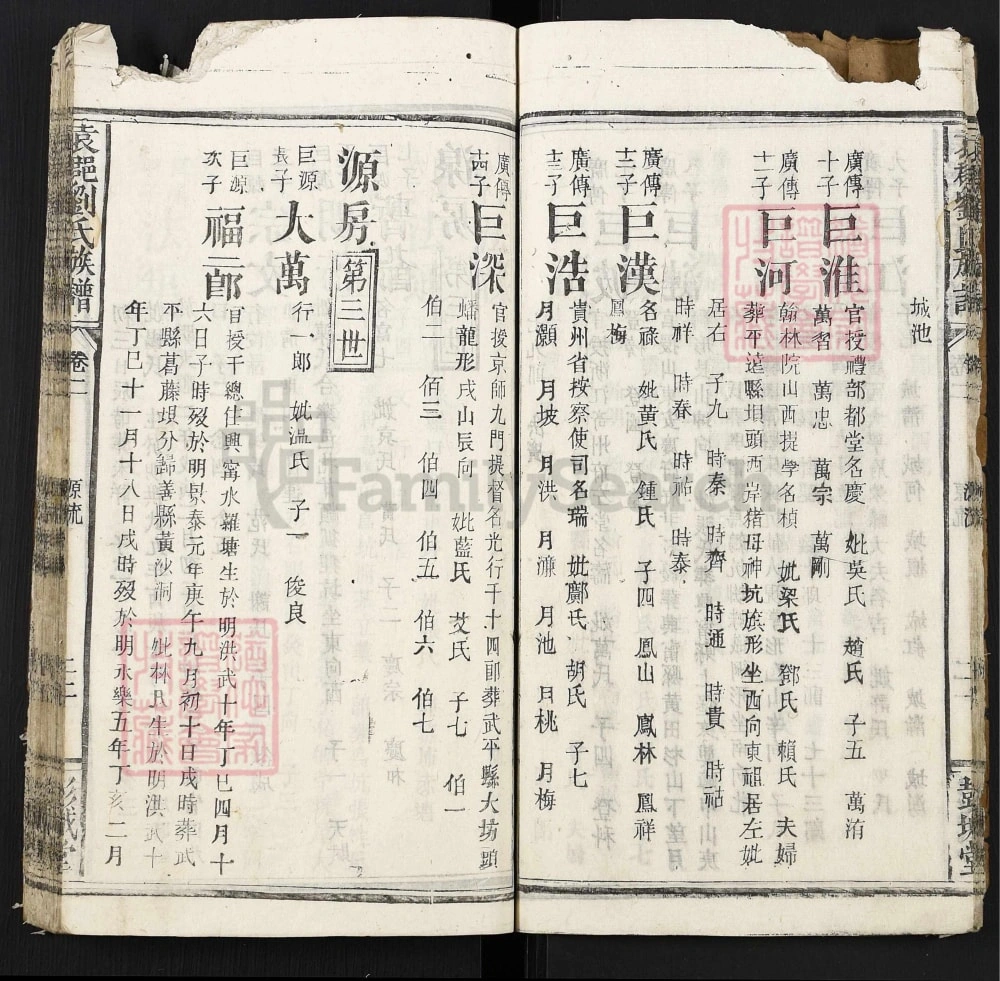 城池
廣傳十子 巨淮 官授禮部都堂名慶 妣吳氏 趙氏 子五 萬洧
萬習 萬忠 萬宗 萬剛
廣傳十一子 巨河 翰林院山西提學名楨 妣梁氏 鄧氏 賴氏 夫婦
葬平遠縣垻頭西岸猪母神坑旗形坐西向東祖居左妣
居右 子九 時泰 時齊 時通 時貴 時祜
時祥 時春 時祐 時泰
廣傳十二子 巨漢 名祿 妣黃氏 鍾氏 子四 鳳山 鳳林 鳳祥
鳳梅
廣傳十三子 巨浩 貴州省按察使司名瑞 妣鄺氏 胡氏 子七
月灝 月坡 月洪 月濂 月池 月桃 月梅
廣傳十四子 巨深 官授京師九門提督名光行千十四郎葬武平縣大坊頭
蟠龍形戌山辰向 妣藍氏 艾氏 子七 伯一
伯二 伯三 伯四 伯五 伯六 伯七
源房 第三世
巨源長子 大萬 行一郎 妣溫氏 子一 俊良
巨源次子 福二郎 官授千總住興寗水羅塘生於明洪武十年丁巳四月十
六日子時歿於明景泰元年庚午九月初十日戌時葬武
平縣葛藤垻分歸善縣黃沙洞 妣林氏生於明洪武十
年丁巳十一月十八日戌時歿於明永樂五年丁亥二月
袁郡劉氏族譜 卷二 源流 二二 彭城堂
FamilySearch